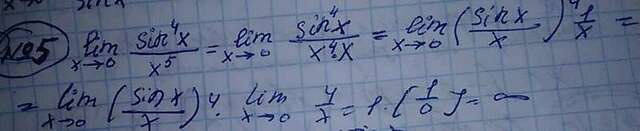 №5 lim x→0 sin⁴x / x⁵ = lim x→0 sin⁴x / x⁴·x = lim x→0 (sin x / x)⁴ 1/x =
= lim x→0 (sin x / x)⁴ · lim x→0 1/x = 1 · [1/0] = ∞